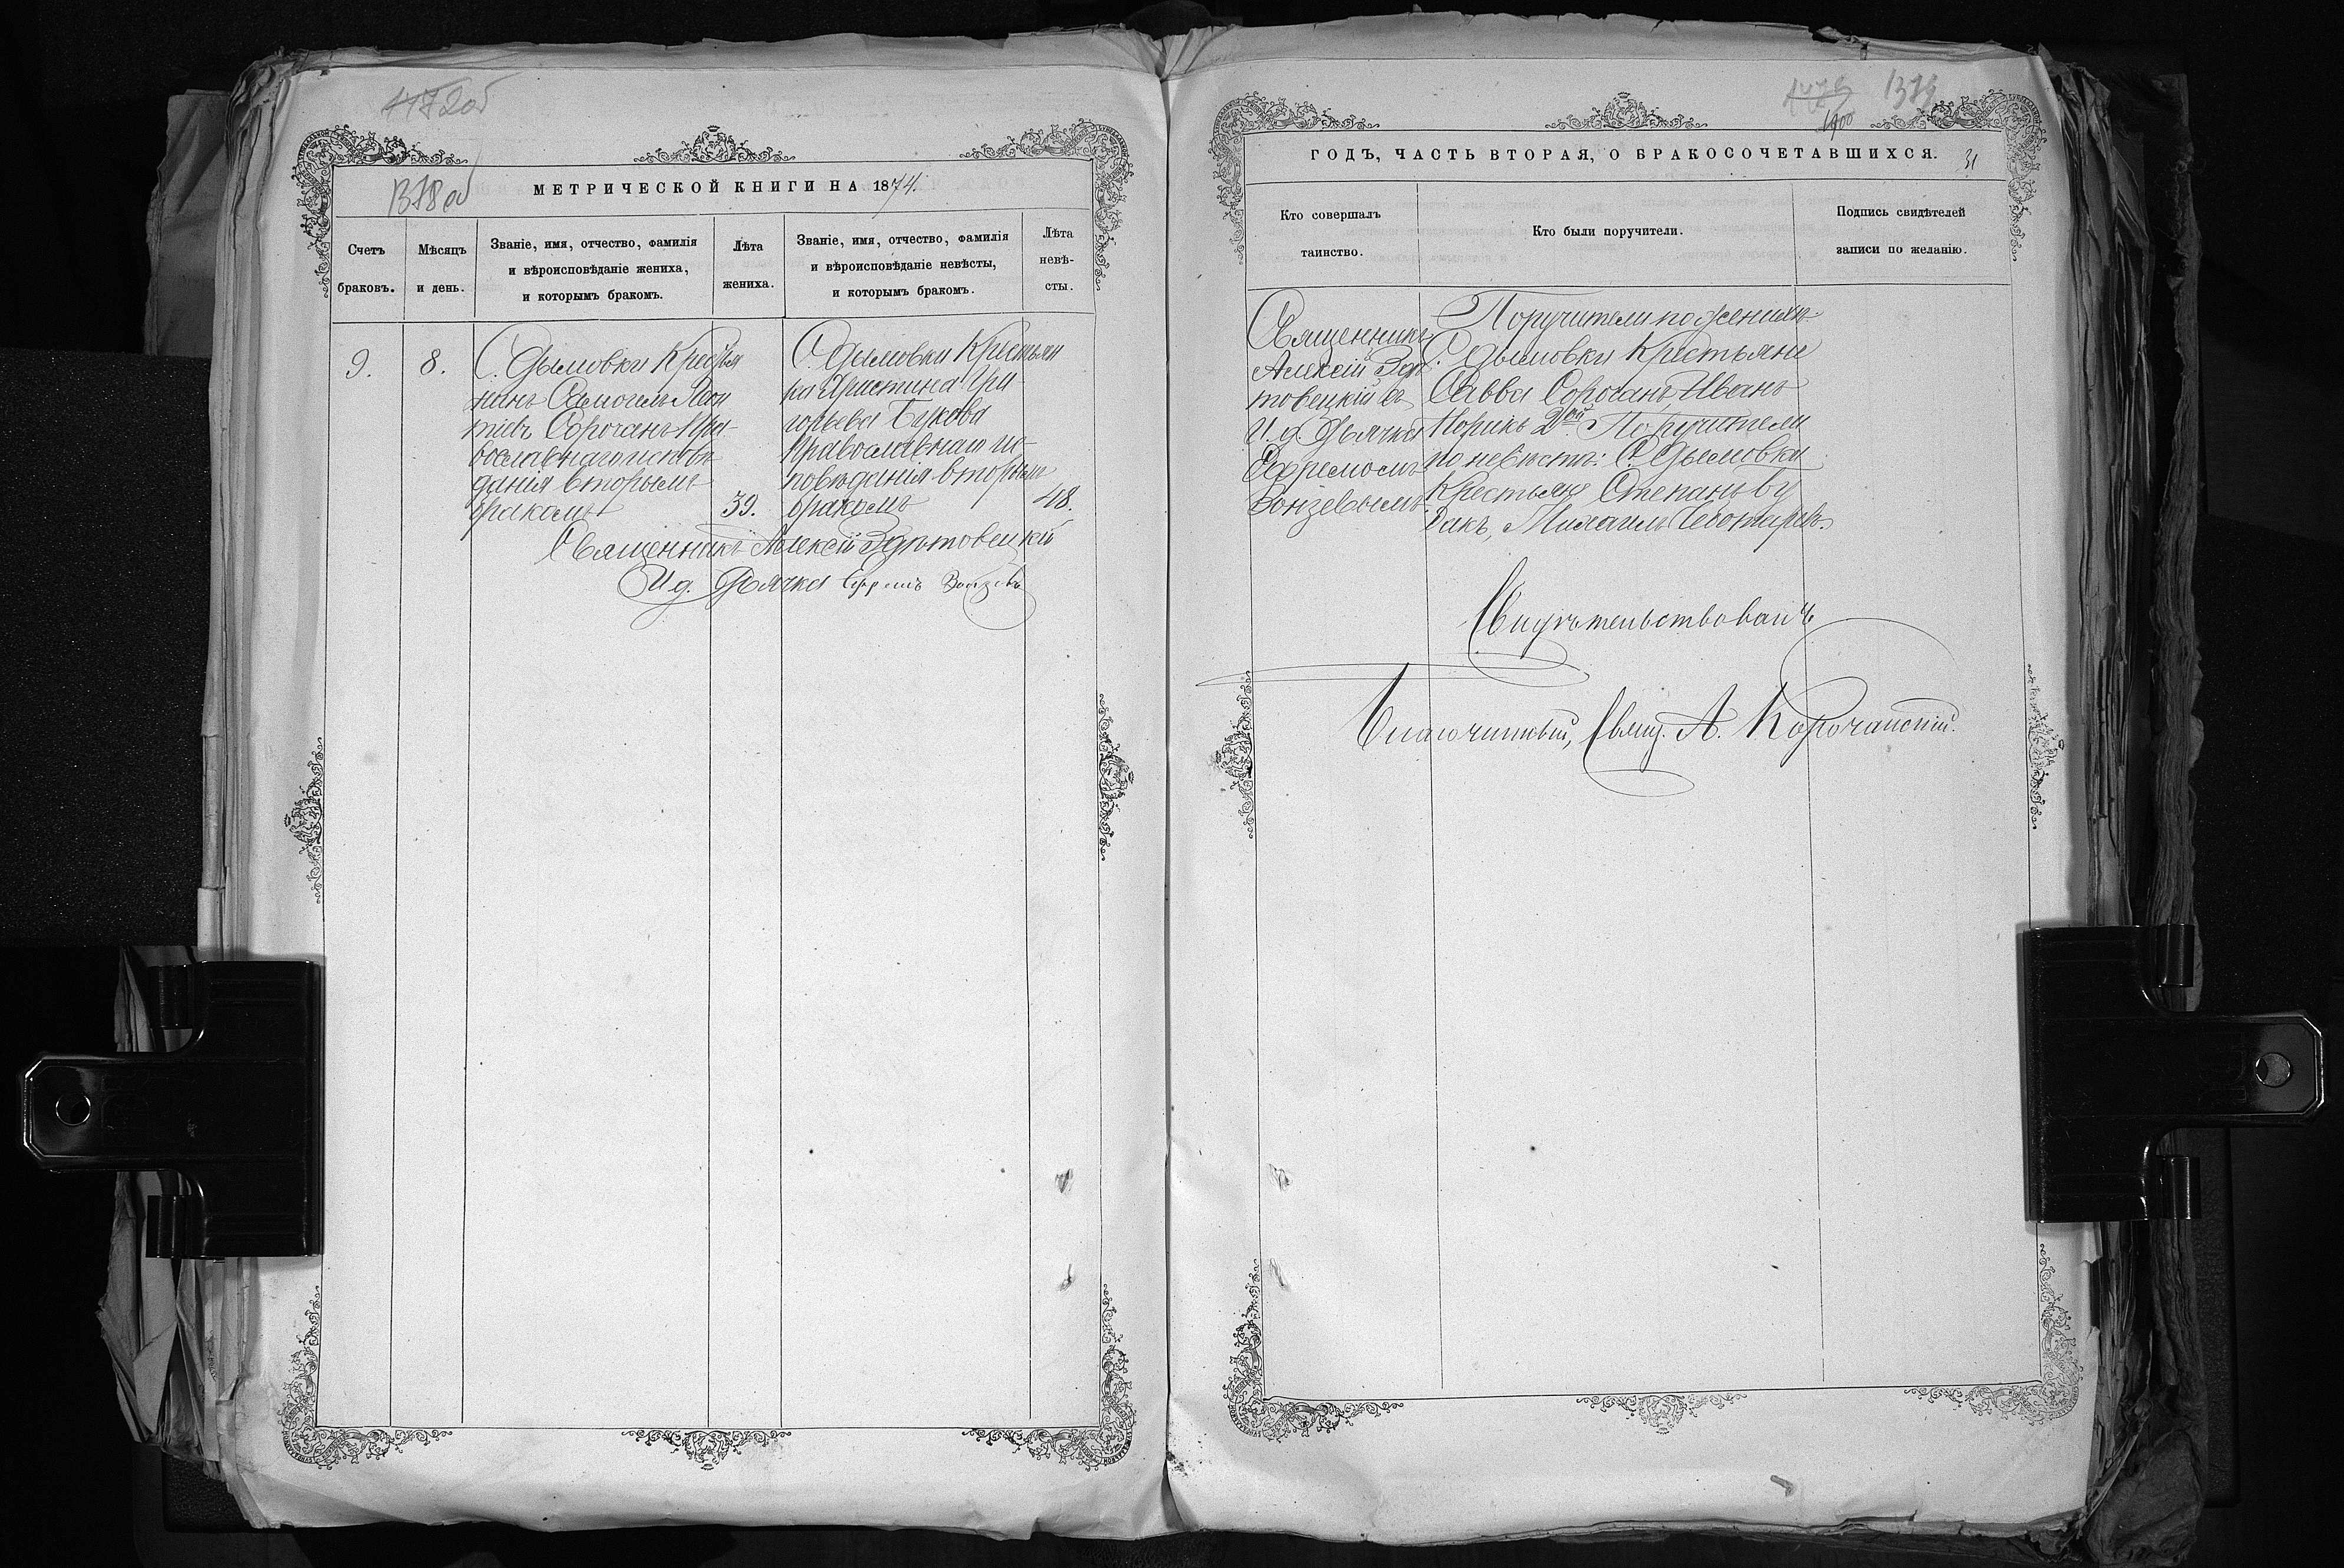 1378 об
МЕТРИЧЕСКОЙ КНИГИ НА 1874.
Счетъ браковъ.
Мѣсяцъ и день.
Званіе, имя, отчество, фамилія
и вѣроисповѣданіе жениха,
и которымъ бракомъ.
Лѣта жениха.
Званіе, имя, отчество, фамилія
и вѣроисповѣданіе невѣсты,
и которымъ бракомъ.
Лѣта
невѣ-
сты.
9.
8.
С. Дымовки Кресья
нинъ Самоилъ Леон
тіевъ Сорочанъ Пра-
вославнаго исповѣ
данія вторымъ
бракомъ
39.
С. Дымовки Крестьян
ка Христина Гри-
горьева
Православнаго ис-
повѣданія вторымъ
бракомъ
48.
Священникъ Алексій
И. д. Дьячка Ефремъ
1379
31
ГОДЪ, ЧАСТЬ ВТОРАЯ, О БРАКОСОЧЕТАВШИХСЯ.
Кто совершалъ
таинство.
Кто были поручители.
Подпись свидѣтелей
записи по желанію.
Священникъ
Алексій
товецкій съ
И. д. Дьячка
Ефремомъ
Поручители по женихѣ:
С. Дымовки Крестьяне
Савва Сорочанъ Иванъ
2й Поручители
по невѣстѣ: С. Дымовки
Крестьяне Степанъ Бу
дакъ, Михаилъ
Свидѣтельствовалъ
Благочинный, Свящ. А. Корочанскій.